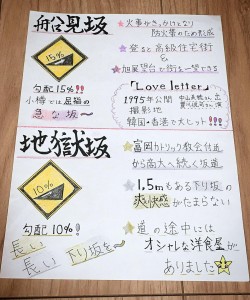 船見坂
15%
勾配15%!!
小樽では屈指の
急な坂〜
★火事がきっかけとなり
防火帯のため形成
★登ると高級住宅街
&
旭展望台で街を一望できる
「Love letter」
1995年公開 中山美穂さん 出
撮影地 豊川悦司さん 演
韓国・香港で大ヒット!!
地獄坂
10%
勾配10%!
長い
長い下り坂を〜
★富岡カトリック教会付近
から商大へ続く坂道
★1.5mもある下り坂の
爽快感がたまらない
★道の途中には
オシャレな洋食屋が
ありました☆